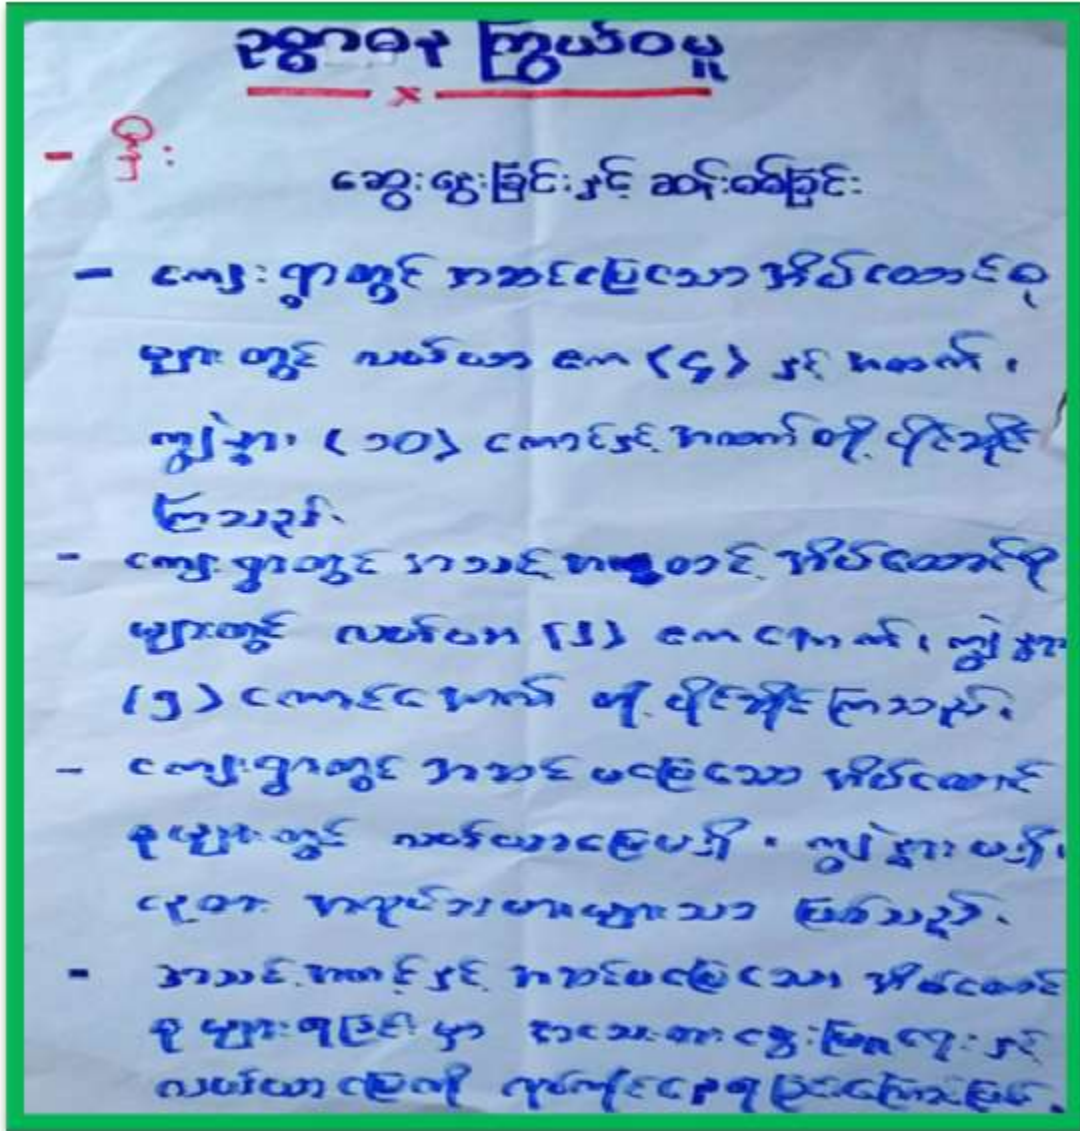 ဥစ္စာဓန ကြွယ်ဝမှု
- ဦး
ဆွေးနွေးခြင်းနှင့် ဆန်းစစ်ခြင်း
- ကျေးရွာတွင် အဆင်ပြေသော အိမ်ထောင်စု
များတွင် လယ်ယာ ဧက (၄) နှင့် အထက်၊
ကျွဲနွား (၁၀) ကောင်နှင့် အထက် တို့ ပိုင်ဆိုင်
ကြသည်။
- ကျေးရွာတွင် အသင့်အတင့် အိမ်ထောင်စု
များတွင် လယ်ယာ (၂) ဧက အောက်၊ ကျွဲနွား
(၅) ကောင်အောက် တို့ ပိုင်ဆိုင်ကြသည်။
- ကျေးရွာတွင် အဆင်မပြေသော အိမ်ထောင်
စုများတွင် လယ်ယာမြေမရှိ၊ ကျွဲနွားမရှိ၊
နေ့စား အလုပ်သမားများသာ ဖြစ်သည်။
- အသင့်အတင့်နှင့် အဆင်မပြေသော အိမ်ထောင်
စုများရခြင်းမှာ အသေးစားငွေး နှင့်
လယ်ယာမြေကို လုပ်ကိုင်နေရခြင်းကြောင့်ဖြစ်